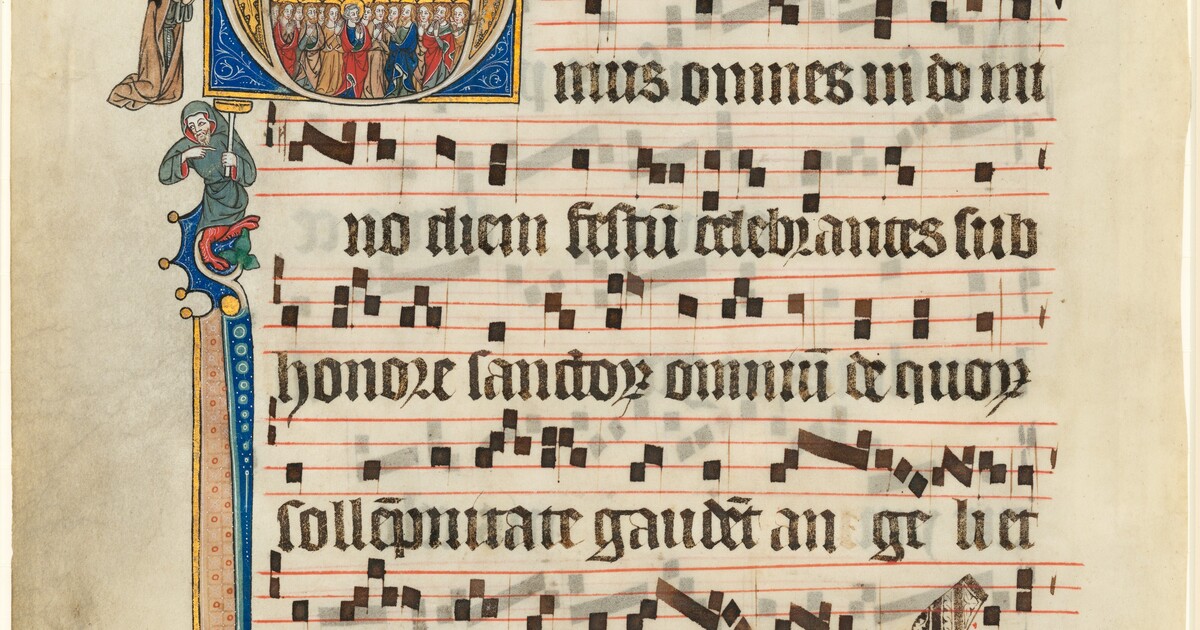 mus omnes in do mi
no diem festū celebrantes sub
honore sanctoꝝ omniū de quoꝝ
sollēpnitate gaudēt an ge li et